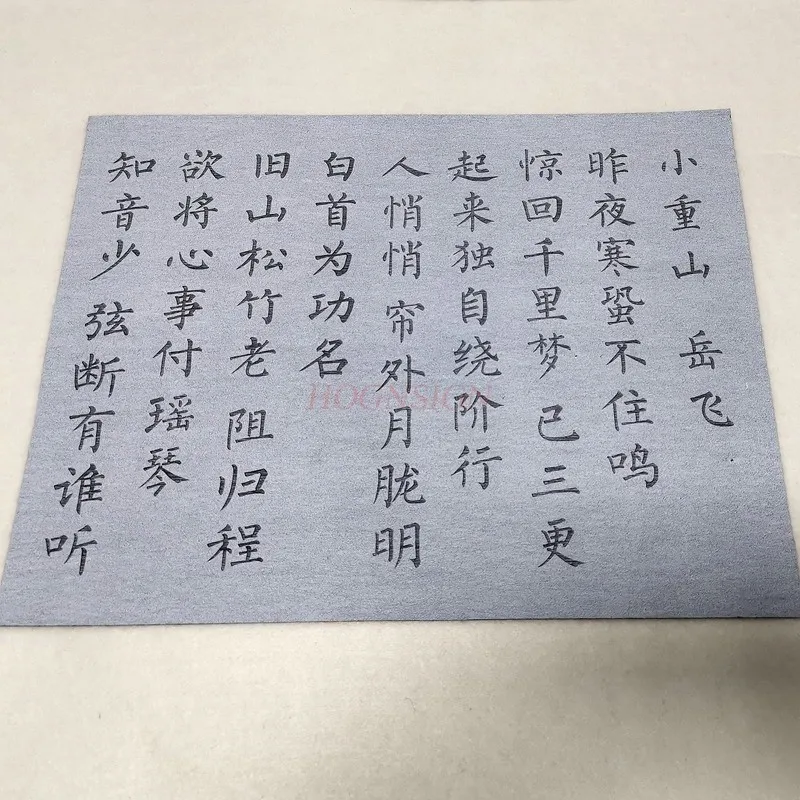 小重山 岳飞
昨夜寒蛩不住鸣
惊回千里梦 已三更
起来独自绕阶行
人悄悄 帘外月胧明
白首为功名
旧山松竹老 阻归程
欲将心事付瑶琴
知音少 弦断有谁听
HOONSION